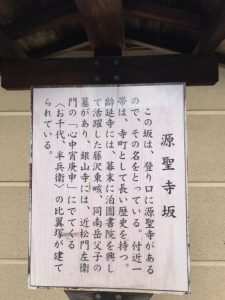 源聖寺坂
この坂は、登り口に源聖寺がある
ので、その名をとっている。付近一
帯は、寺町として長い歴史を持つ。
齢延寺には、幕末に泊園書院を興し
て活躍した藤沢東畡、同南岳父子の
墓があり、銀山寺には、近松門左衛
門の「心中宵庚申」にでてくる
〈お千代、半兵衛〉の比翼塚が建て
られている。